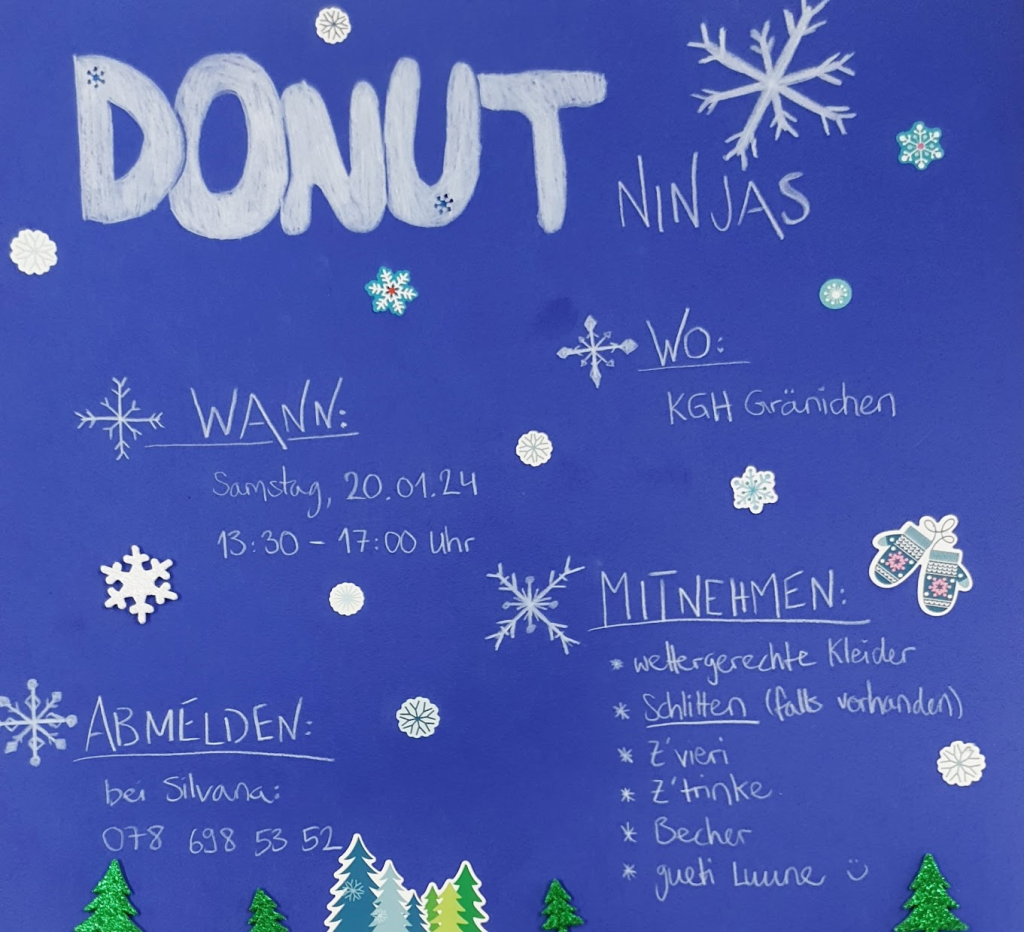 DONUT
NINJAS
WO:
KGH Gränichen
WANN:
Samstag, 20.01.24
13:30 - 17:00 Uhr
MITNEHMEN:
* wettergerechte Kleider
* Schlitten (falls vorhanden)
* Z'vieri
* Z'trinke
* Becher
* gueti Luune ☺
ABMELDEN:
bei Silvana:
078 698 53 52